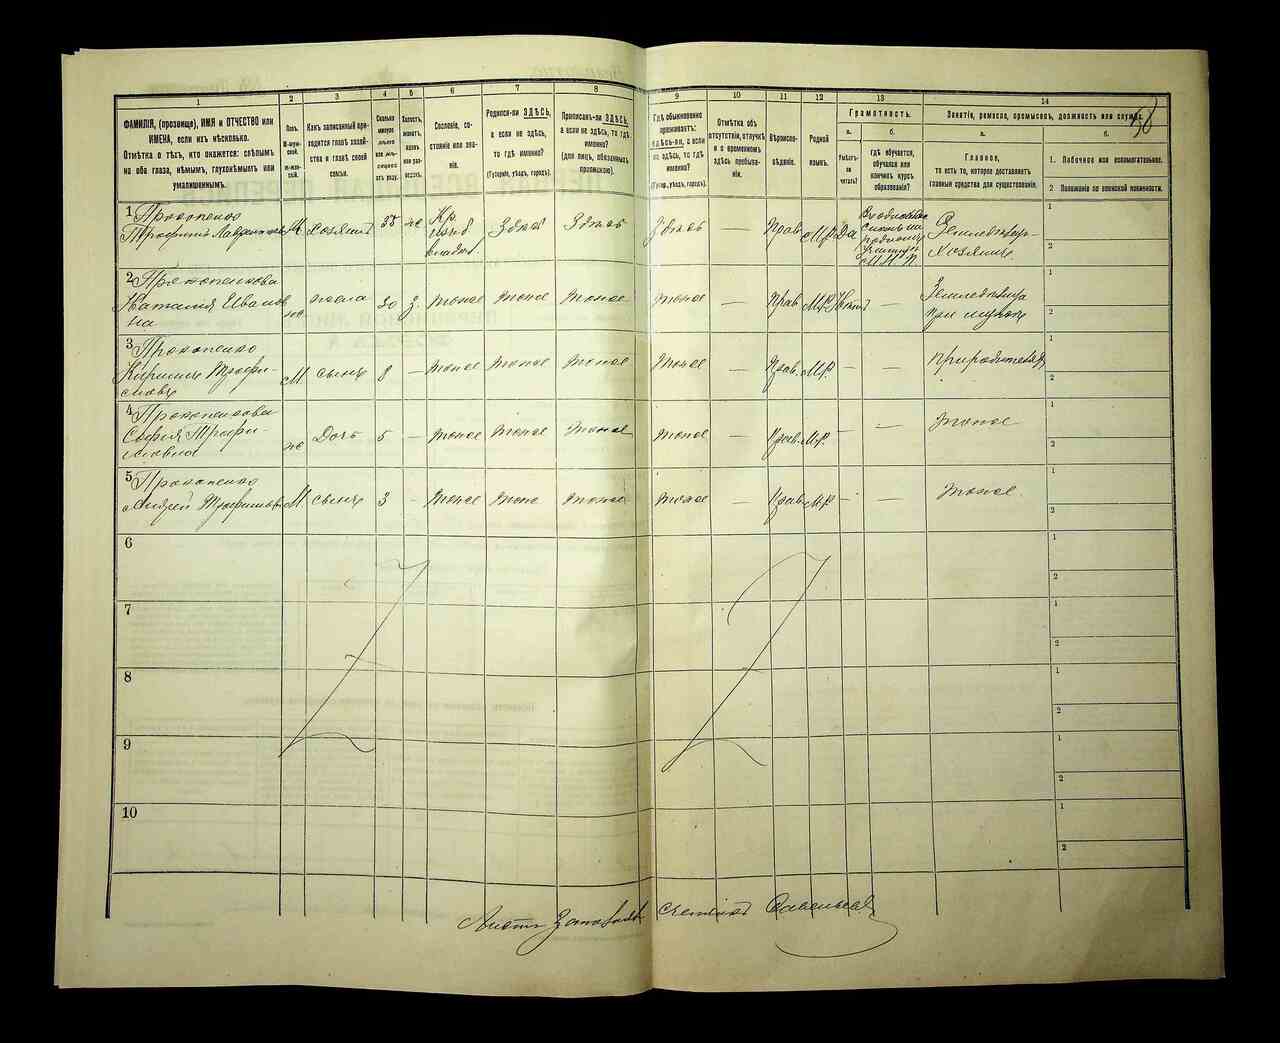 58
1
2
3
4
5
6
7
8
9
10
11
12
13
14
ФАМИЛІЯ, (прозвище), ИМЯ и ОТЧЕСТВО или
ИМЕНА, если ихъ нѣсколько.
Отмѣтка о тѣхъ, кто окажется: слѣпымъ
на оба глаза, нѣмымъ, глухонѣмымъ или
умалишеннымъ.
Полъ.
М-муж-
ской.
Ж-жен-
скій.
Какъ записанный при-
ходится главѣ хозяй-
ства и главѣ своей
семьи.
Сколько
минуло
лѣтъ
или мѣ-
сяцевъ
отъ роду.
Холостъ,
женатъ,
вдовъ
или раз-
веденъ.
Сословіе, со-
стояніе или зва-
ніе.
Родился-ли ЗДѢСЬ,
а если не здѣсь,
то гдѣ именно?
(Губернія, уѣздъ, городъ).
Приписанъ-ли ЗДѢСЬ,
а если не здѣсь, то гдѣ
именно?
(для лицъ, обязанныхъ
припискою).
Гдѣ обыкновенно
проживаетъ:
здѣсь-ли, а если
не здѣсь, то гдѣ
именно?
(Губер., уѣздъ, городъ).
Отмѣтка объ
отсутствіи, отлучкѣ
и о временномъ
здѣсь пребыва-
ніи.
Вѣроиспо-
вѣданіе.
Родной
языкъ.
Грамотность.
а.
б.
Умѣетъ-
ли
читать?
гдѣ обучается,
обучался или
кончилъ курсъ
образованія?
Занятіе, ремесло, промыселъ, должность или служба.
а.
б.
Главное,
то есть то, которое доставляетъ
главныя средства для существованія.
1. Побочное или вспомогательное.
2 Положеніе по воинской повинности.
1 Прокопенко
Трофимъ
М
хозяинъ
38
же
Кр.
владѣл.
Здѣсь
Здѣсь
Здѣсь
—
Прав.
М.Р.
Да
Хозяинъ
1
2
2 Прокопенкова
Наталия Иванов
на
же
жена
30
з.
тоже
тоже
тоже
тоже
—
Прав
М.Р.
при мужѣ
1
2
3 Прокопенко
Кирилъ Трофи-
мовъ
М
сынъ
8
—
тоже
тоже
тоже
тоже
—
Прав.
М.Р.
—
—
При родителяхъ
1
2
4 Прокопенкова
София Трофи-
мовна
же
Дочь
5
—
тоже
тоже
тоже
тоже
—
Прав.
М.Р.
—
—
тоже
1
2
5 Прокопенко
Андрей Трофимовъ
М
сынъ
3
-
тоже
тоже
тоже
тоже
—
Прав.
М.Р.
—
—
тоже.
1
2
6
1
2
7
1
2
8
1
2
9
1
2
10
1
2
Листъ счетчикъ